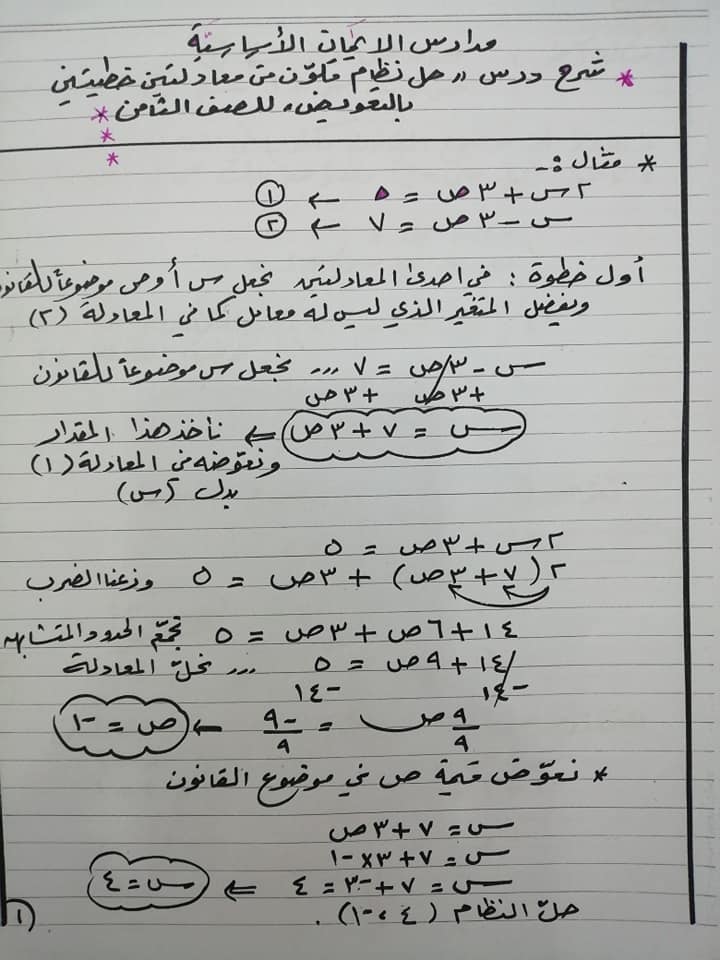 مدارس الايمان الأساسية
* شرح درس " حل نظام مكوّن من معادلتين خطيتين
بالتعويض، للصف الثامن *
*
*
* مثال :-
٢س + ٣ص = ٥ ← ①
س - ٣ص = ٧ ← ②
أول خطوة : في احدى المعادلتين نجعل س أو ص موضوعاً للقانون
ويفضل المتغير الذي ليس له معامل كما في المعادلة (٢)
س - ٣ص = ٧ ... نجعل س موضوعاً للقانون
+٣ص +٣ص
س = ٧ + ٣ص ⇐ نأخذ هذا المقدار
ونعوّضه في المعادلة (١)
بدل (س)
٢س + ٣ص = ٥
٢(٧ + ٣ص) + ٣ص = ٥ وزعنا الضرب
١٤ + ٦ص + ٣ص = ٥ نجمّع الحدود المتشابهه
١٤ + ٩ص = ٥ ... نحلّ المعادلة
-١٤ -١٤
٩ص/٩ = -٩/٩ ← ص = -١
* نعوّض قيمة ص في موضوع القانون
س = ٧ + ٣ص
س = ٧ + ٣×-١
س = ٧ + -٣ = ٤ ⇐ س = ٤
حلّ النظام (٤ ، -١) .
١